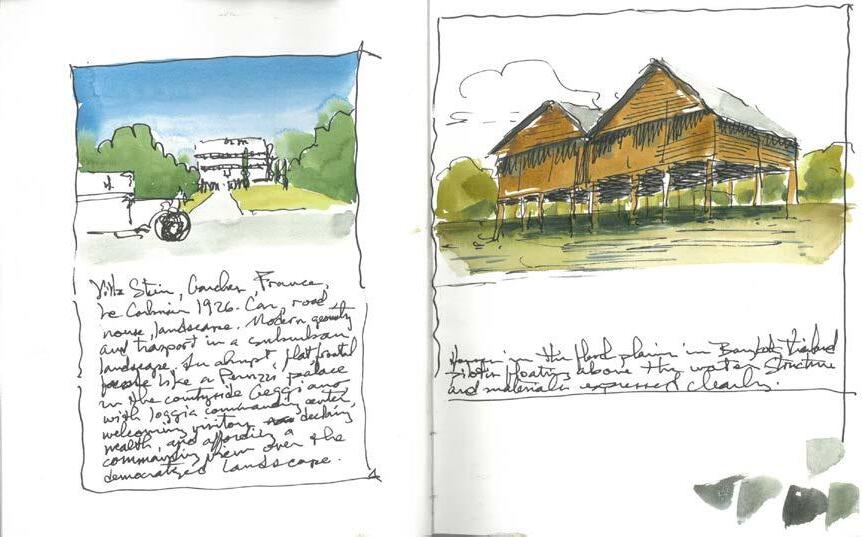 Villa Stein, Garches, France,
Le Corbusier 1926. Car, road
house, landscape. Modern geometry
and transport in a suburban
landscape. An almost, flat frontal
facade like a Peruzzi palace
in the countryside
with loggia commanding center,
welcoming visitors, declaring
wealth, and affording a
commanding view over the
democratized landscape.
Houses in the flood plain in Bangkok Thailand
floating above the water. Structure
and materials expressed clearly.